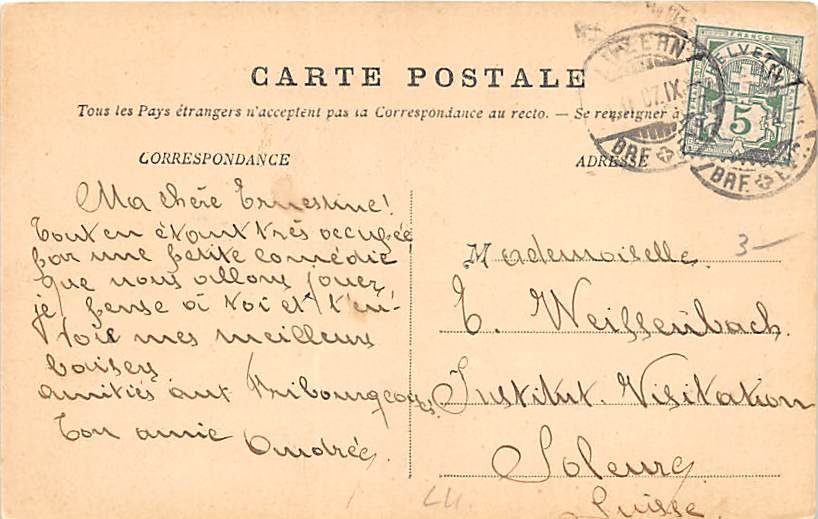 CARTE POSTALE
Tous les Pays étrangers n'acceptent pas la Correspondance au recto. — Se renseigner à
CORRESPONDANCE
ADRESSE
Ma chère Ernestine!
Tout en étant très occupée
par une petite comédie
que nous allons jouer,
je pense à toi et t'en-
voie mes meilleurs
baisers
amitiés aux Fribourgeoises
Ton amie Andrée.
Mademoiselle.
E. Weissenbach.
Institut. Visitation
Soleure
Suisse.
3 —
LU
FRANCO
HELVETIA
5
LUZERN
07.IX
BRF.
BRF.